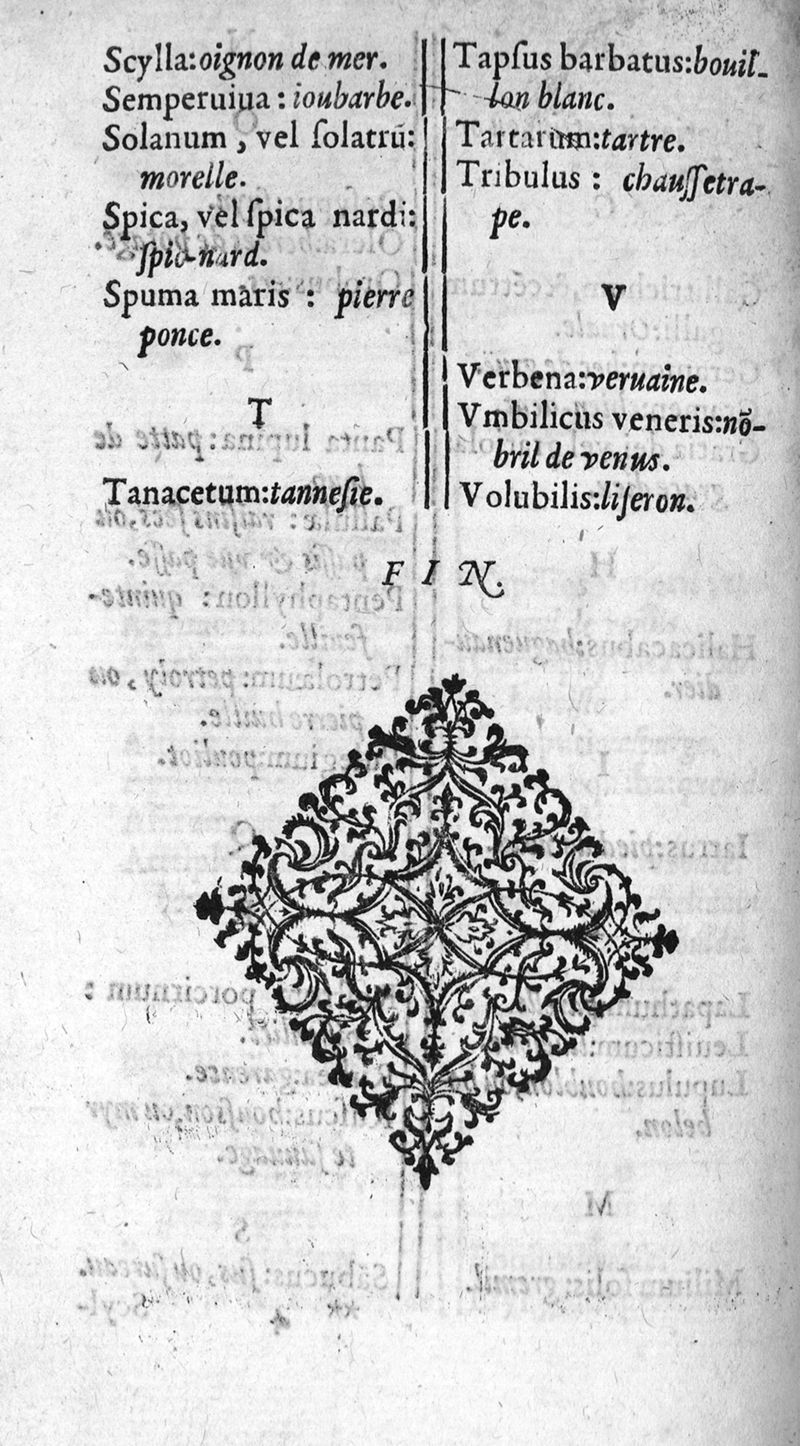 Scylla:oignon de mer.
Semperuiua : ioubarbe.
Solanum , vel ſolatrũ:
morelle.
Spica, vel ſpica nardi:
ſpic-nard.
Spuma maris : pierre
ponce.
T
Tanacetum:tanneſie.
Tapſus barbatus:bouil-
lon blanc.
Tartarum:tartre.
Tribulus : chauſſetra-
pe.
V
Verbena:veruaine.
Vmbilicus veneris:nõ-
bril de venus.
Volubilis:liſeron.
FIN.